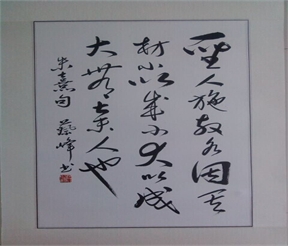 聖人施教各因其
材小以成小大以成
大無棄人也
朱熹句 藝峰书